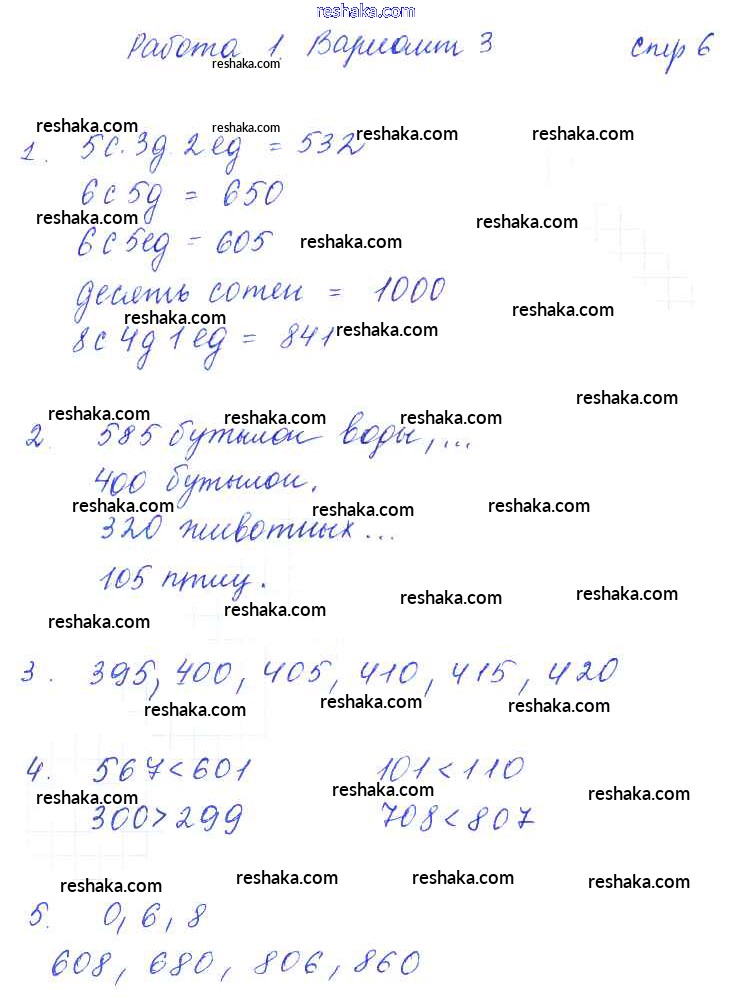 reshaka.com
Работа 1 Вариант 3 стр 6
reshaka.com
reshaka.com reshaka.com reshaka.com reshaka.com
1. 5с. 3д. 2ед = 532
6с 5д = 650
reshaka.com reshaka.com
6с 5ед = 605 reshaka.com
десять сотен = 1000
reshaka.com reshaka.com
8с 4д 1ед = 841 reshaka.com
reshaka.com
reshaka.com reshaka.com reshaka.com
2. 585 бутылок воды, ...
400 бутылок.
reshaka.com reshaka.com reshaka.com
320 животных ...
105 птиц.
reshaka.com reshaka.com reshaka.com reshaka.com
3. 395, 400, 405, 410, 415, 420
reshaka.com reshaka.com reshaka.com
4. 567 < 601 101 < 110
reshaka.com reshaka.com reshaka.com
300 > 299 708 < 807
reshaka.com reshaka.com reshaka.com reshaka.com
5. 0, 6, 8
608, 680, 806, 860